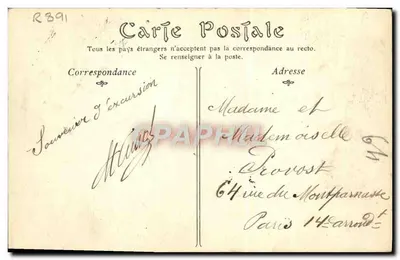 R391
Carte Postale
Tous les pays étrangers n'acceptent pas la correspondance au recto.
Se renseigner à la poste.
Correspondance
Adresse
Souvenir d'excursion
Madame et
Mademoiselle
Provost
64 rue du Montparnasse
Paris 14e arrondt